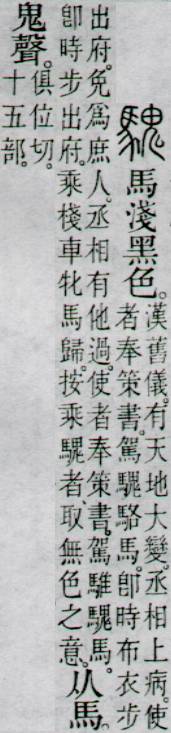 騩馬淺黑色。
漢舊儀。有天地大變。丞相上病。使
者奉策書。駕驪駱馬。卽時布衣步
出府。免爲庶人。丞相有他過。使者奉策書。駕騅騩馬。
卽時步出府。乘棧車牝馬歸。按乘騩者、取無色之意。
从馬。
鬼聲。
俱位切。
十五部。